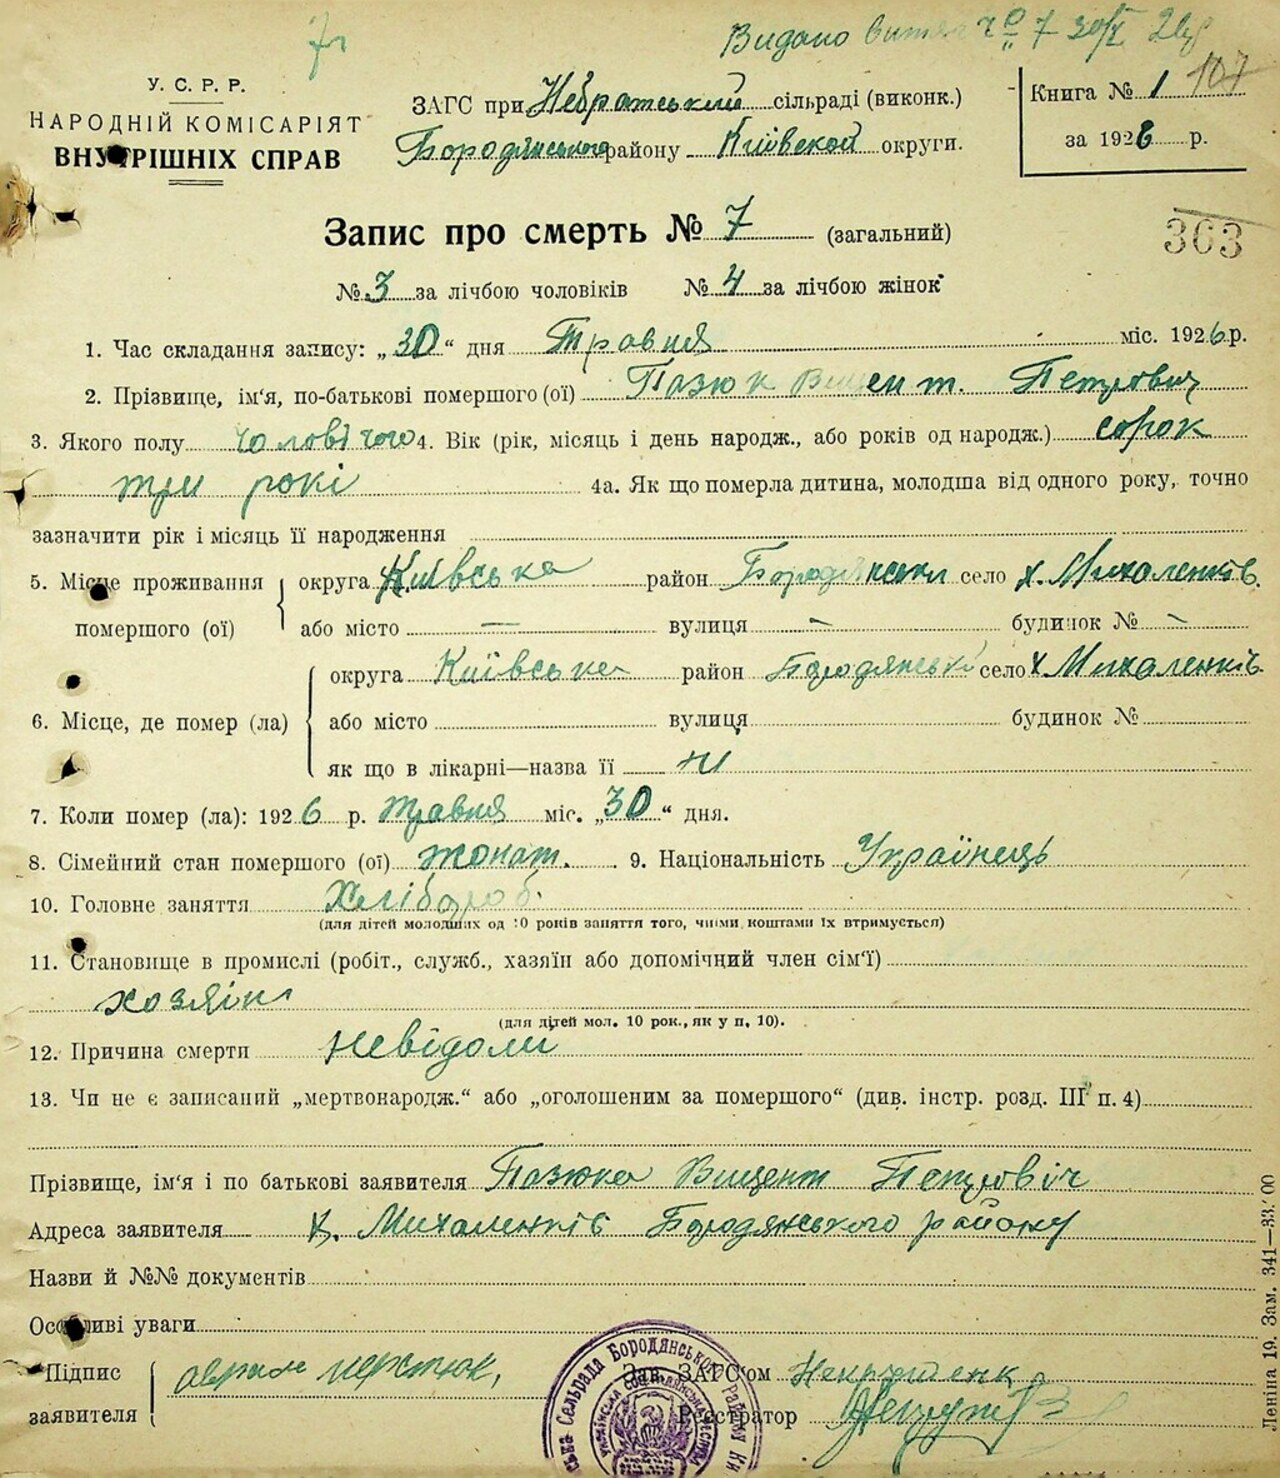 Видано витяг № 7 30/V 26р
У. С. Р. Р.
НАРОДНІЙ КОМІСАРІЯТ
ВНУТРІШНІХ СПРАВ
ЗАГС при Небратський сільраді (виконк.)
Бородянського району Київской округи.
Книга № 1 107
за 1926 р.
363
Запис про смерть № 7 (загальний)
№ 3 за лічбою чоловіків № 4 за лічбою жінок
1. Час складання запису: „30“ дня Травня міс. 1926 р.
2. Прізвище, ім'я, по-батькові помершого (ої) Пазюк Вицент. Петрович
3. Якого полу чоловічого 4. Вік (рік, місяць і день народж., або років од народж.) сорок
три рокі 4а. Як що померла дитина, молодша від одного року, точно
зазначити рік і місяць її народження
5. Місце проживання помершого (ої) округа Київська район Бородянски село х. Михаленків.
або місто — вулиця — будинок № —
6. Місце, де помер (ла) округа Київська район Бородянські село х Михаленків
або місто вулиця будинок №
як що в лікарні—назва її ні
7. Коли помер (ла): 1926 р. травня міс. „30“ дня.
8. Сімейний стан помершого (ої) жонат. 9. Національність Українець
10. Головне заняття Хлібороб.
(для дітей молодших од 10 років заняття того, чиїми коштами їх втримується)
11. Становище в промислі (робіт., служб., хазяїн або допомічний член сім'ї)
хозяін
(для дітей мол. 10 рок., як у п. 10).
12. Причина смерти Невідоми
13. Чи не є записаний „мертвонародж.“ або „оголошеним за помершого“ (див. інстр. розд. III п. 4)
Прізвище, ім'я і по батькові заявителя Пазюка Вицент Петровіч
Адреса заявителя х. Михаленків Бородянського району
Назви й №№ документів
Особливі уваги
Підпис заявителя
Зав. ЗАГС'ом
Реєстратор
Сельрада Бородянського Району Ки
Леніна 19. Зам. 341—33.